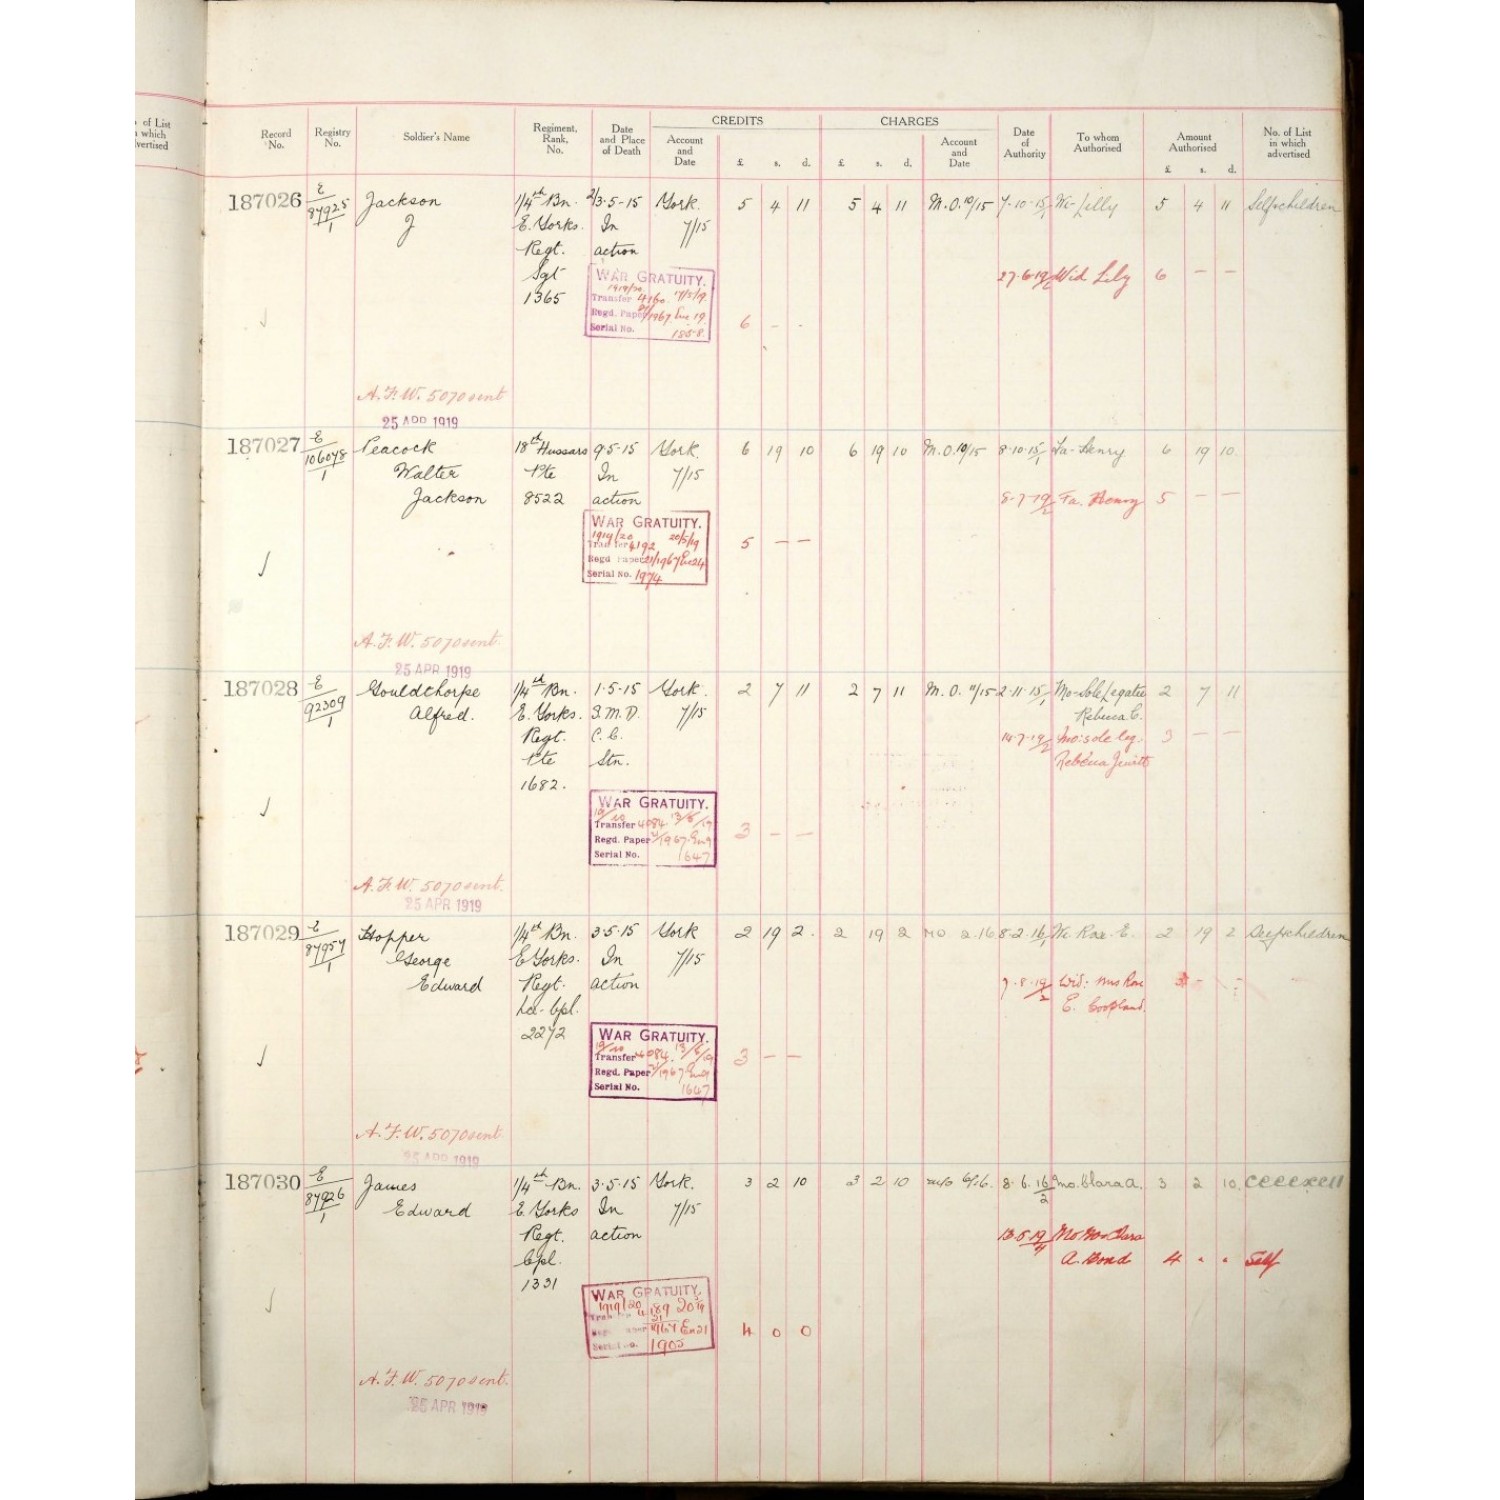 of List
which
vertised
Record No.
Registry No.
Soldier's Name
Regiment, Rank, No.
Date and Place of Death
CREDITS
Account and Date
£ s. d.
CHARGES
£ s. d.
Account and Date
Date of Authority
To whom Authorised
Amount Authorised
£ s. d.
No. of List in which advertised
187026 E/87925/1 Jackson 1/4th Bn. 2/3.5-15 York. 5 4 11 5 4 11 M.O. 10/15 7-10-15/1 Wi-Lilly 5 4 11 Self+children
J E. Yorks. In 7/15
Regt. action
Sgt 27.6.19/2 Wid Lily 6 — —
1365
WAR GRATUITY.
1919/20
Transfer 4160. 17/5/19.
Regd. Paper 21/1967 Enc 19.
Serial No. 1858.
6 - -
A.F.W. 5070 sent
25 APR 1919
187027 E/106078/1 Peacock 18th Hussars 9-5-15 York. 6 19 10 6 19 10 M.O. 10/15 8-10-15/1 Fa-Henry 6 19 10.
Walter Pte In 7/15
Jackson 8522 action 8-7-19/2 Fa. Henry 5 — —
WAR GRATUITY.
1919/20 20/5/19
Transfer 4192
Regd Paper 21/1967 Enc 24
Serial No. 1974
5 — —
A.F.W. 5070 sent.
25 APR 1919
187028 E/92309/1 Gouldthorpe 1/4th Bn. 1.5-15 York. 2 7 11 2 7 11 M.O. 11/15 2-11-15/1 Mo-Sole Legatee 2 7 11
Alfred. E. Yorks. 3.M.D. 7/15 Rebecca C.
Regt. C.C. 14.7.19/2 Mo: sole leg. 3 — —
Pte Stn. Rebecca Jewitt
1682.
WAR GRATUITY.
19/20
Transfer 4084 13/6/19
Regd. Paper 21/1967 En 9
Serial No. 1647
3 — —
A.F.W. 5070 sent.
25 APR 1919
187029 E/87957/1 Hopper 1/4th Bn. 3.5.15 York 2 19 2. 2 19 2 MO 2.16 8.2.16/1 Wi Rose E. 2 19 2 Self+children
George E Yorks. In 7/15
Edward Regt. action 7.8.19/2 Wid: Mrs Rose
Lce-Cpl. E. Coopland.
2272
WAR GRATUITY.
19/20
Transfer 4084. 13/6/19
Regd. Paper 21/1967 En 9
Serial No. 1647
3 — —
A.F.W. 5070 sent.
25 APR 1919
187030 E/87926/1 James 1/4th Bn. 3.5.15 York. 3 2 10 3 2 10 m/o 6/16. 8.6.16/2 Mo. Clara A. 3 2 10.
Edward E. Yorks In 7/15
Regt. action 13.5.19/4
Cpl. A. Bond 4 . . Self
1331
WAR GRATUITY.
1919/20 4189 20/5/19
21/1967 En 21
Serial No. 1905
4 0 0
A.F.W. 5070 sent.
25 APR 1919